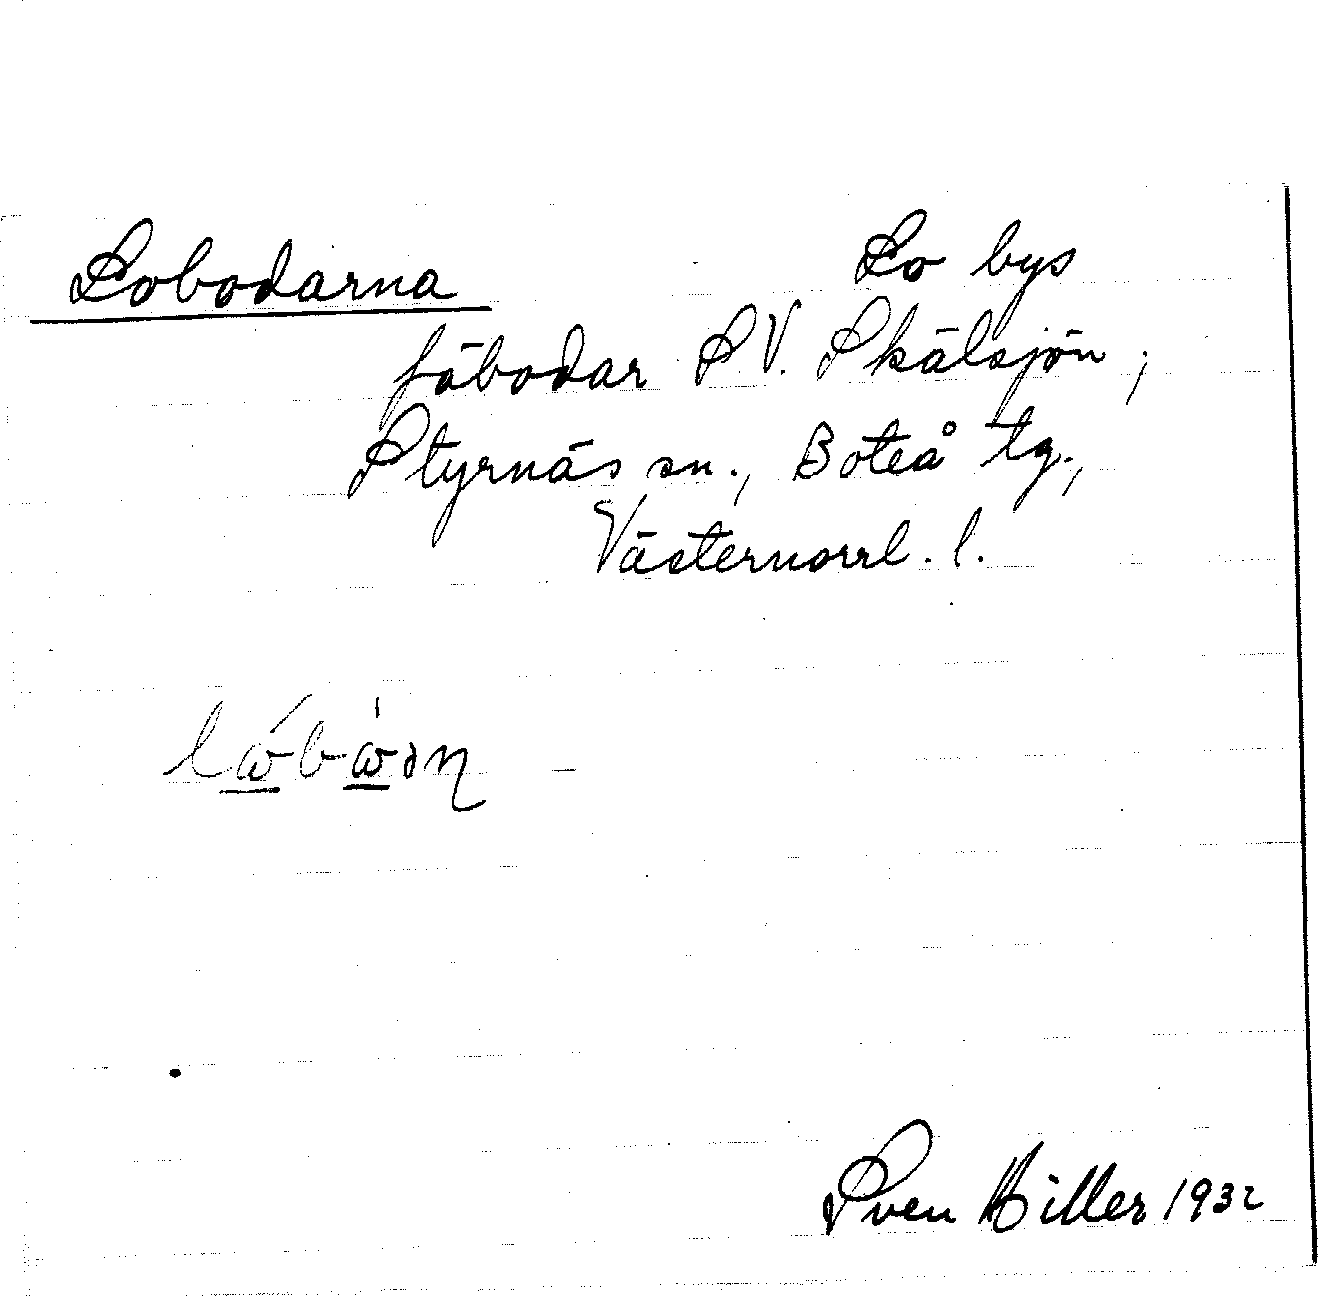 Lobodarna
Lo bys
fäbodar SV. Skälsjön;
Styrnäs sn., Boteå tg.,
Västernorrl. l.
Sven Hiller 1932